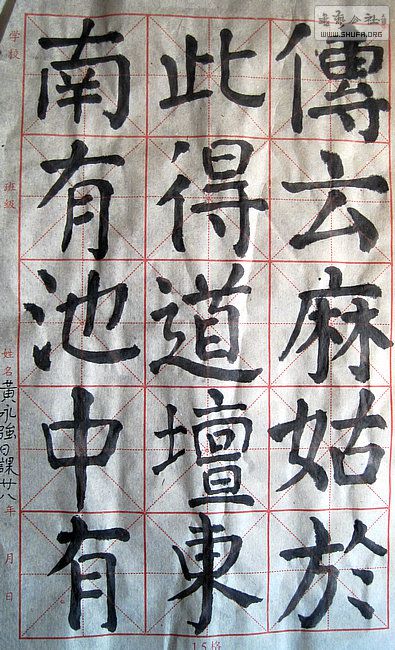 傳云麻姑於
此得道壇東
南有池中有
學校
班級
姓名 黄永強日課廿八
年 月 日
15格
書藝公社
WWW.SHUFA.ORG